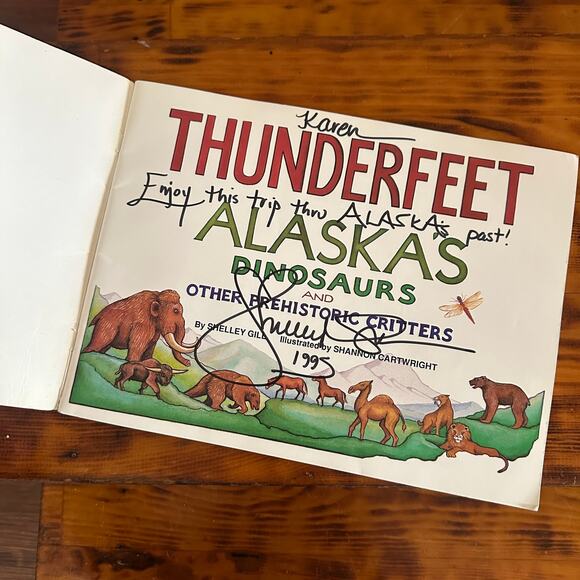 Karen
THUNDERFEET
Enjoy this trip thru ALASKA's past!
ALASKAS
DINOSAURS
AND
OTHER PREHISTORIC CRITTERS
By SHELLEY GILL Illustrated by SHANNON CARTWRIGHT
1995